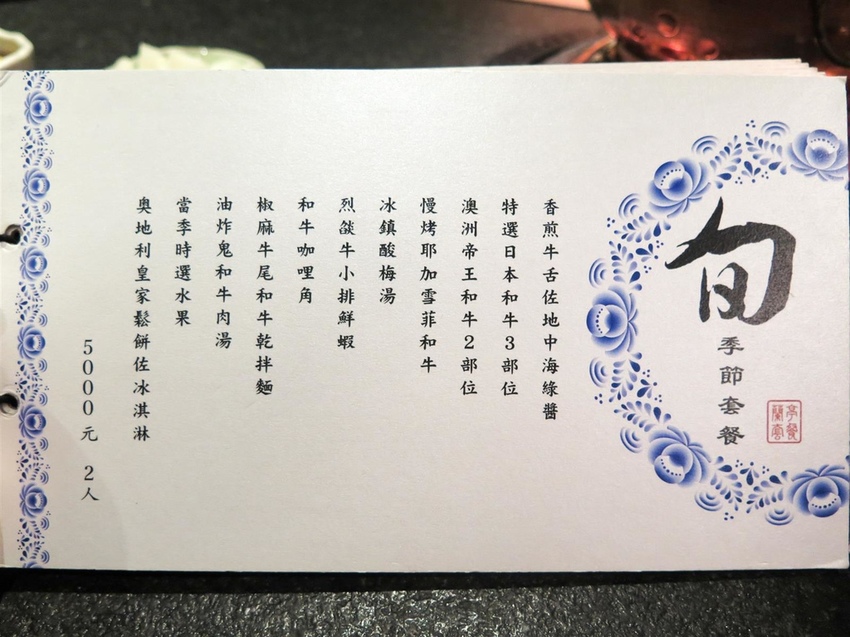 旬
季節套餐
香煎牛舌佐地中海綠醬
特選日本和牛3部位
澳洲帝王和牛2部位
慢烤耶加雪菲和牛
冰鎮酸梅湯
烈燄牛小排鮮蝦
和牛咖哩角
椒麻牛尾和牛乾拌麵
油炸鬼和牛肉湯
當季時選水果
奧地利皇家鬆餅佐冰淇淋
5000元 2人